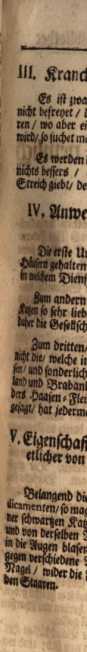 III. Kranck
Es ist zwa
nicht befreyet / 
ren / wo aber ei
wird / so suchet m
Es werden
nichts bessers /
Streich giebt / de
IV. Anwe
Die erste U
Häusern gehalten
in welchem Dien
Zum andern
Katzen so sehr lieb
daher die Gesellsch
Zum dritten /
nicht die / welche i
sen / und sonderlich
land und Braban
des Haasen-Fle
gesagt / hat jederm
V. Eigenschaf
etlicher von
Belangend di
dicamenten / so mag
ner schwartzen Katz
und von derselben
in die Augen blasen
gegen verschiedene
Nagel / wider die
den Staaren.